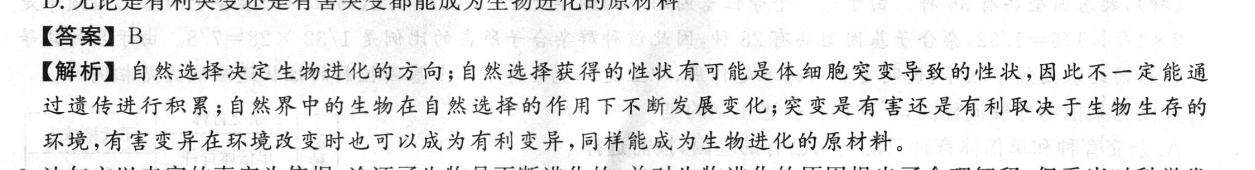 D. 无论是有利突变还是有害突变都能成为生物进化的原材料
【答案】B
【解析】自然选择决定生物进化的方向;自然选择获得的性状有可能是体细胞突变导致的性状,因此不一定能通
过遗传进行积累;自然界中的生物在自然选择的作用下不断发展变化;突变是有害还是有利取决于生物生存的
环境,有害变异在环境改变时也可以成为有利变异,同样能成为生物进化的原材料。